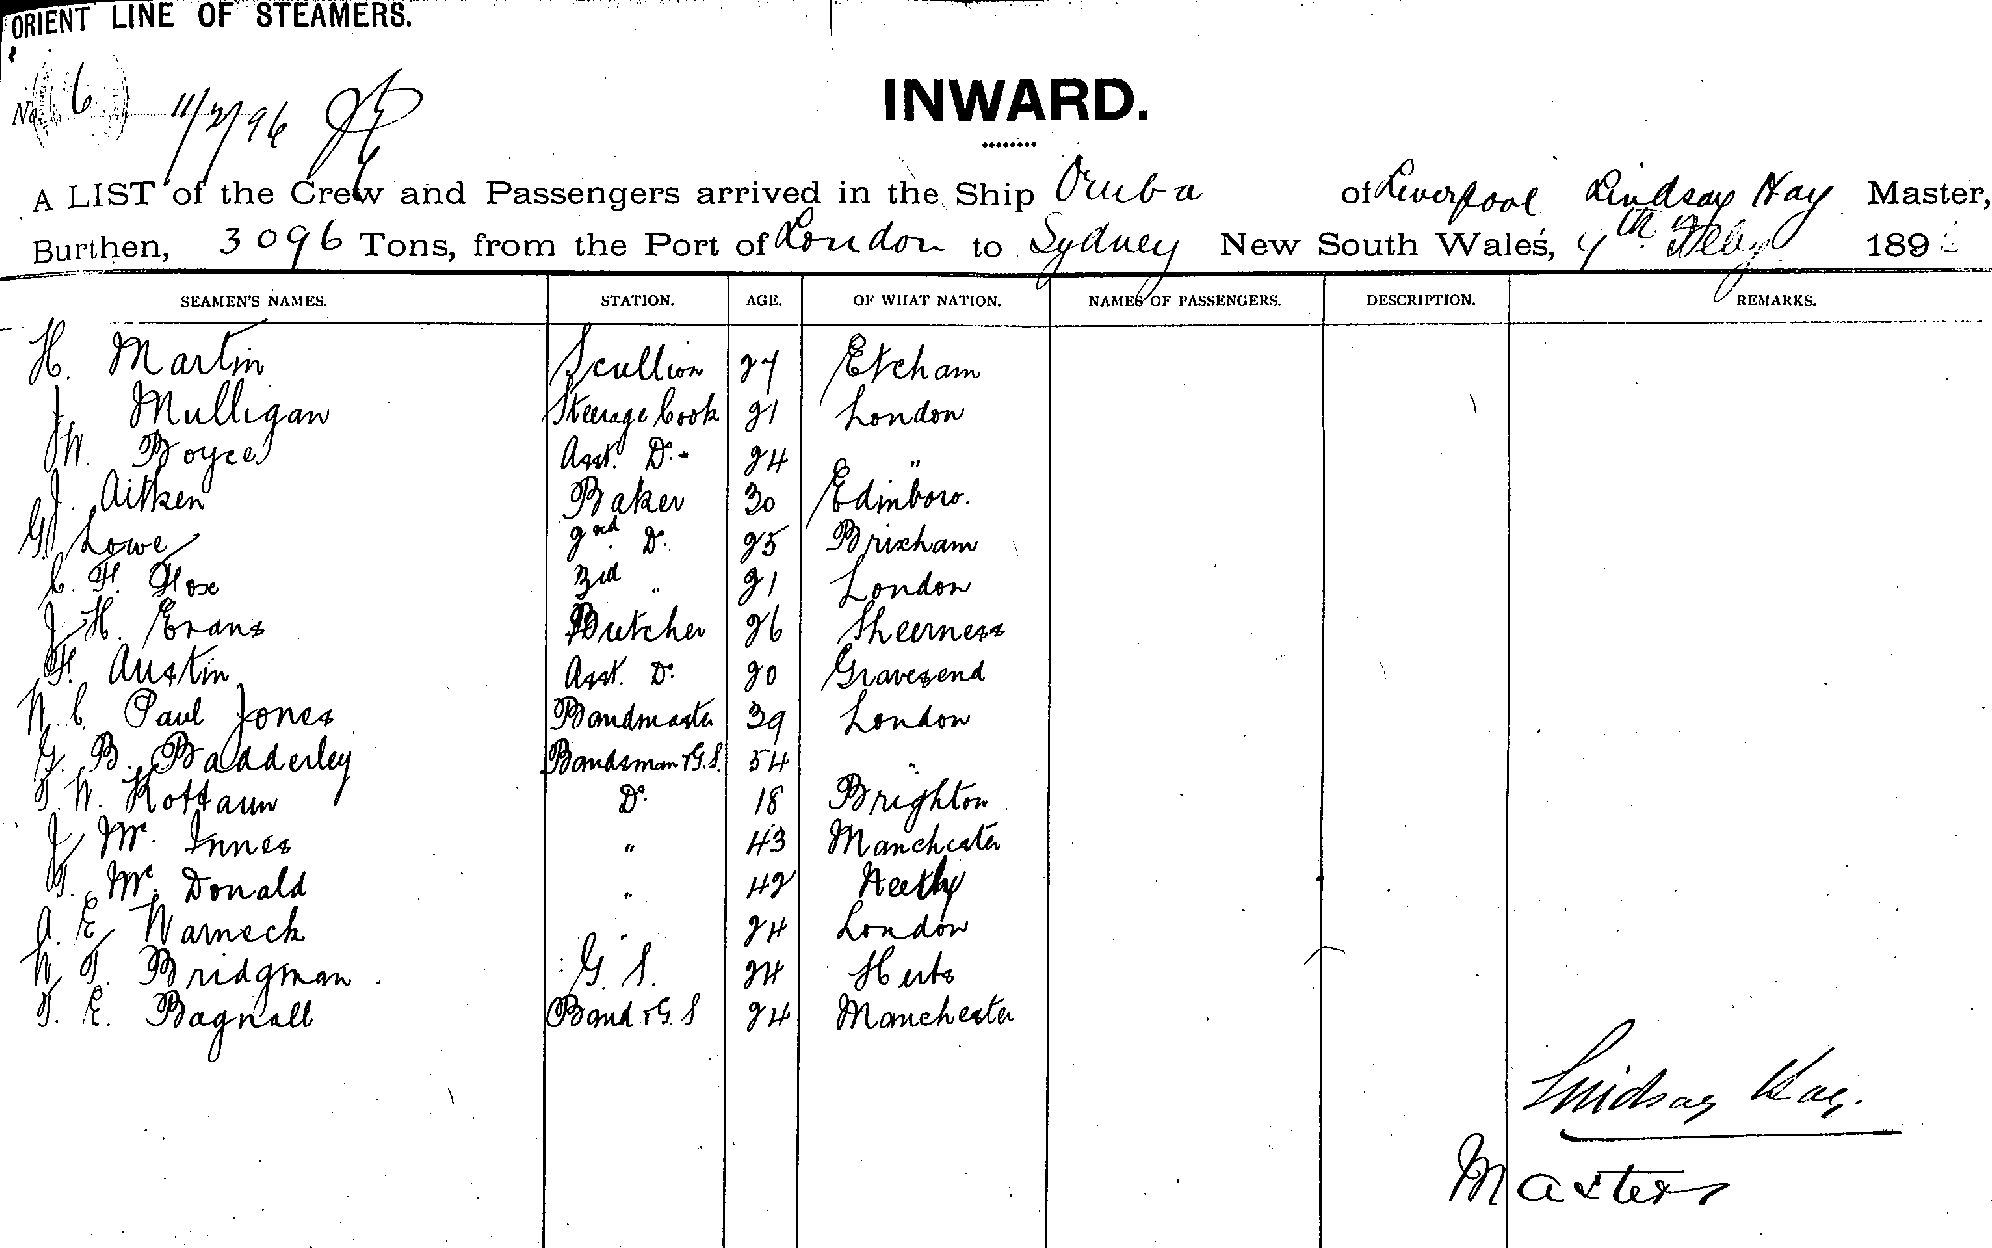 ORIENT LINE OF STEAMERS.
No. 6 11/2/96
INWARD.
A LIST of the Crew and Passengers arrived in the Ship Oruba of Liverpool Lindsay Kay Master,
Burthen, 3096 Tons, from the Port of London to Sydney New South Wales, 7th Feby 1896
SEAMEN'S NAMES. STATION. AGE. OF WHAT NATION. NAMES OF PASSENGERS. DESCRIPTION. REMARKS.
H. Martin Scullion 27 Etcham
J Mulligan Steerage Cook 21 London
W. Boyce Asst. Do. 24 "
J. Aitken Baker 30 Edinboro.
G. Lowe 2nd Do. 25 Brixham
C. F. Fox 3rd " 21 London
J. H. Evans Butcher 26 Sheerness
F. Austin Asst. Do. 20 Gravesend
W. C. Paul Jones Bandmaster 39 London
G. B. Badderley Bandsman & G.S. 54 "
T. W. Kottaun Do. 18 Brighton
J Mc. Innes " 43 Manchester
T. Mc. Donald " 42
A. E. Warneck " 24 London
W. T. Bridgman G. S. 24 Herts
T. E. Bagnall Band & G. S 24 Manchester
Lindsay Kay.
Master